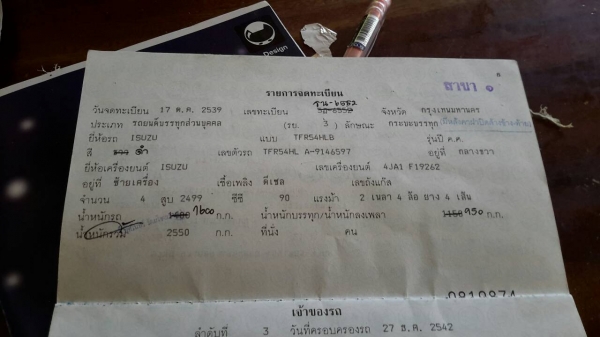 Design
สาขา ๑
รายการจดทะเบียน
วันจดทะเบียน 17 ต.ค. 2539 เลขทะเบียน จังหวัด กรุงเทพมหานคร
ประเภท รถยนต์บรรทุกส่วนบุคคล (รย. 3) ลักษณะ กระบะบรรทุก
ยี่ห้อรถ ISUZU แบบ TFR54HLB รุ่นปี ค.ศ.
สี ดำ เลขตัวรถ TFR54HL A-9146597 อยู่ที่ กลางขวา
ยี่ห้อเครื่องยนต์ ISUZU เลขเครื่องยนต์ 4JA1 F19262
อยู่ที่ ซ้ายเครื่อง เชื้อเพลิง ดีเซล เลขถังแก๊ส
จำนวน 4 สูบ 2499 ซีซี 90 แรงม้า 2 เพลา 4 ล้อ ยาง 4 เส้น
น้ำหนักรถ 1600 ก.ก. น้ำหนักบรรทุก/น้ำหนักลงเพลา 1150 950 ก.ก.
น้ำหนักรวม 2550 ก.ก. ที่นั่ง คน
เจ้าของรถ
ลำดับที่ 3 วันที่ครอบครองรถ 27 ธ.ค. 2542